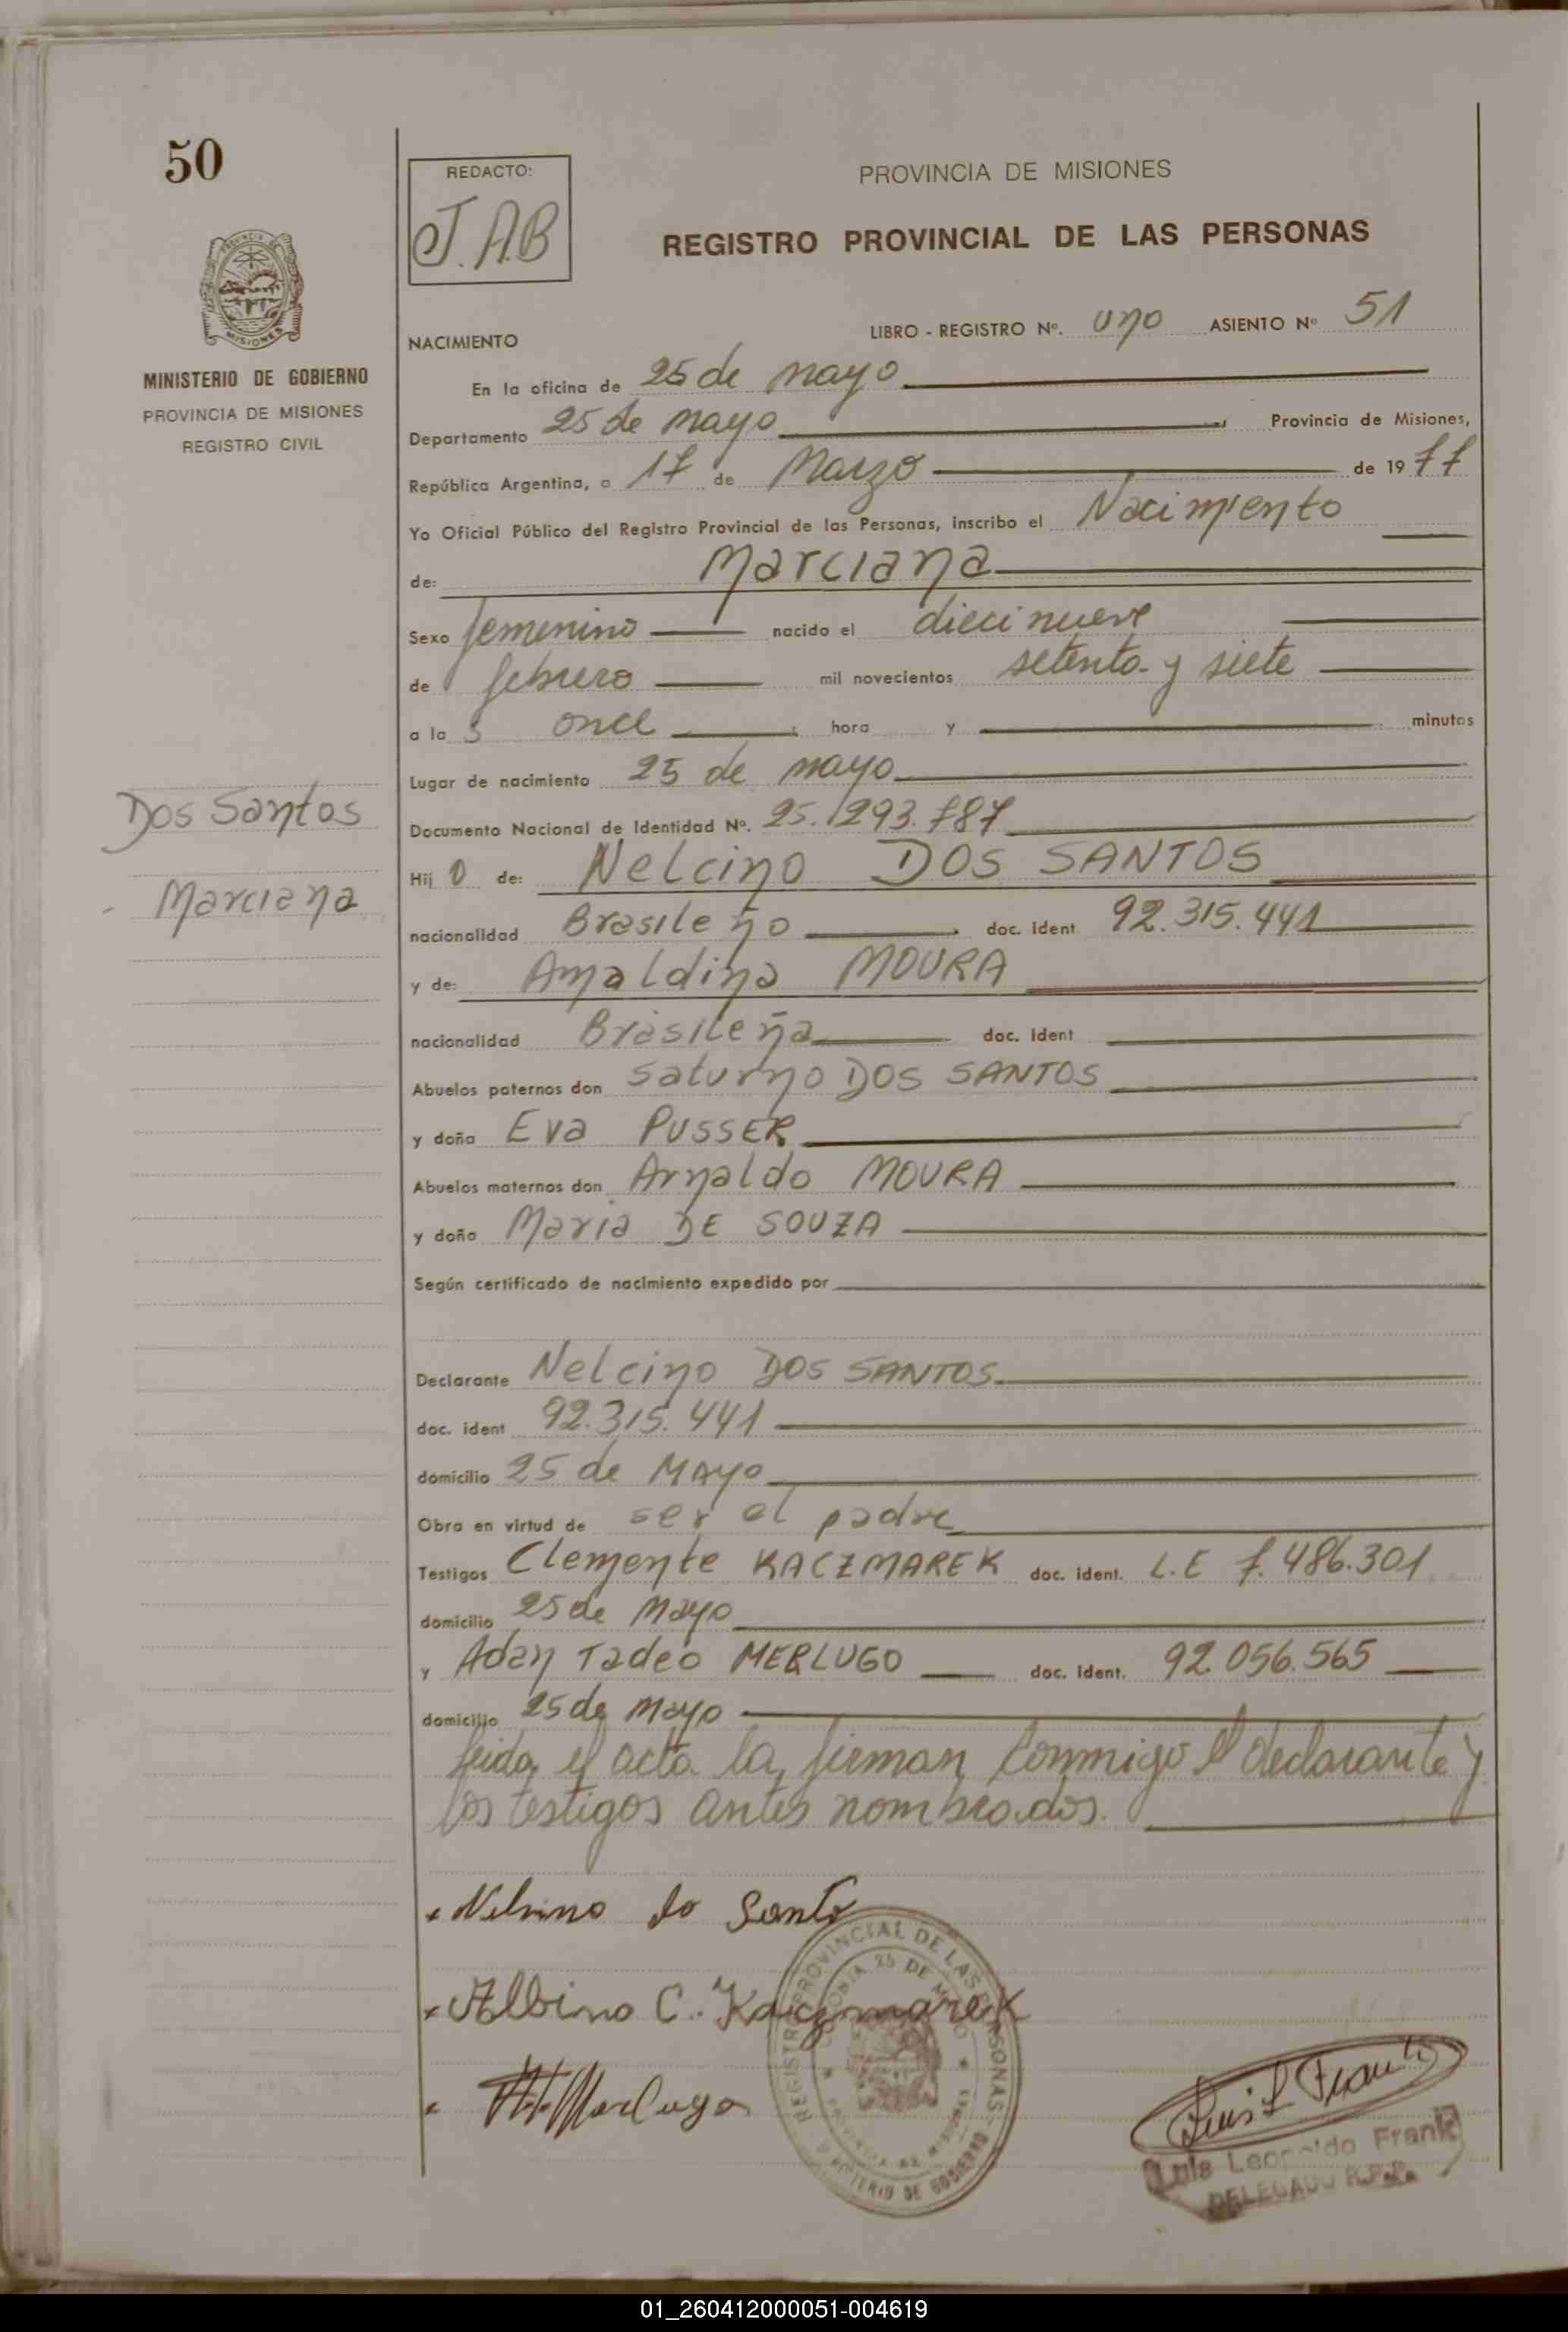 50
REDACTO:
J.A.B
PROVINCIA DE MISIONES
REGISTRO PROVINCIAL DE LAS PERSONAS
MINISTERIO DE GOBIERNO
PROVINCIA DE MISIONES
REGISTRO CIVIL
NACIMIENTO
LIBRO - REGISTRO Nº. uno ASIENTO Nº 51
En la oficina de 25 de mayo
Departamento 25 de mayo, Provincia de Misiones,
República Argentina, a 17 de Marzo de 1977
Yo Oficial Público del Registro Provincial de las Personas, inscribo el Nacimiento
de: Marciana
Sexo femenino nacido el diecinueve
de febrero mil novecientos setenta y siete
a la s once hora y minutos
Lugar de nacimiento 25 de mayo
Dos Santos
Marciana
Documento Nacional de Identidad Nº. 25.293.787
Hij o de: Nelcino DOS SANTOS
nacionalidad Brasileño doc. ident 92.315.441
y de: Amaldina MOURA
nacionalidad Brasileña doc. Ident
Abuelos paternos don Saturno DOS SANTOS
y doña Eva PUSSER
Abuelos maternos don Arnaldo MOURA
y doña Maria DE SOUZA
Según certificado de nacimiento expedido por
Declarante Nelcino DOS SANTOS
doc. ident 92.315.441
domicilio 25 de MAYO
Obra en virtud de ser el padre
Testigos Clemente KACZMAREK doc. ident. L.E 7.486.301
domicilio 25 de Mayo
y Adan Tadeo MERLUGO doc. Ident. 92.056.565
domicilio 25 de Mayo
Leida el acta la firman conmigo el declarante y
los testigos antes nombrados.
Nelsino do Santo
Albino C. Kaczmarek
Merlugo
REGISTRO PROVINCIAL DE LAS PERSONAS
COLONIA 25 DE MAYO
PROVINCIA DE MISIONES
MINISTERIO DE GOBIERNO
Luis L Frank
Luis Leopoldo Frank
DELEGADO R.P.P.
01_260412000051-004619